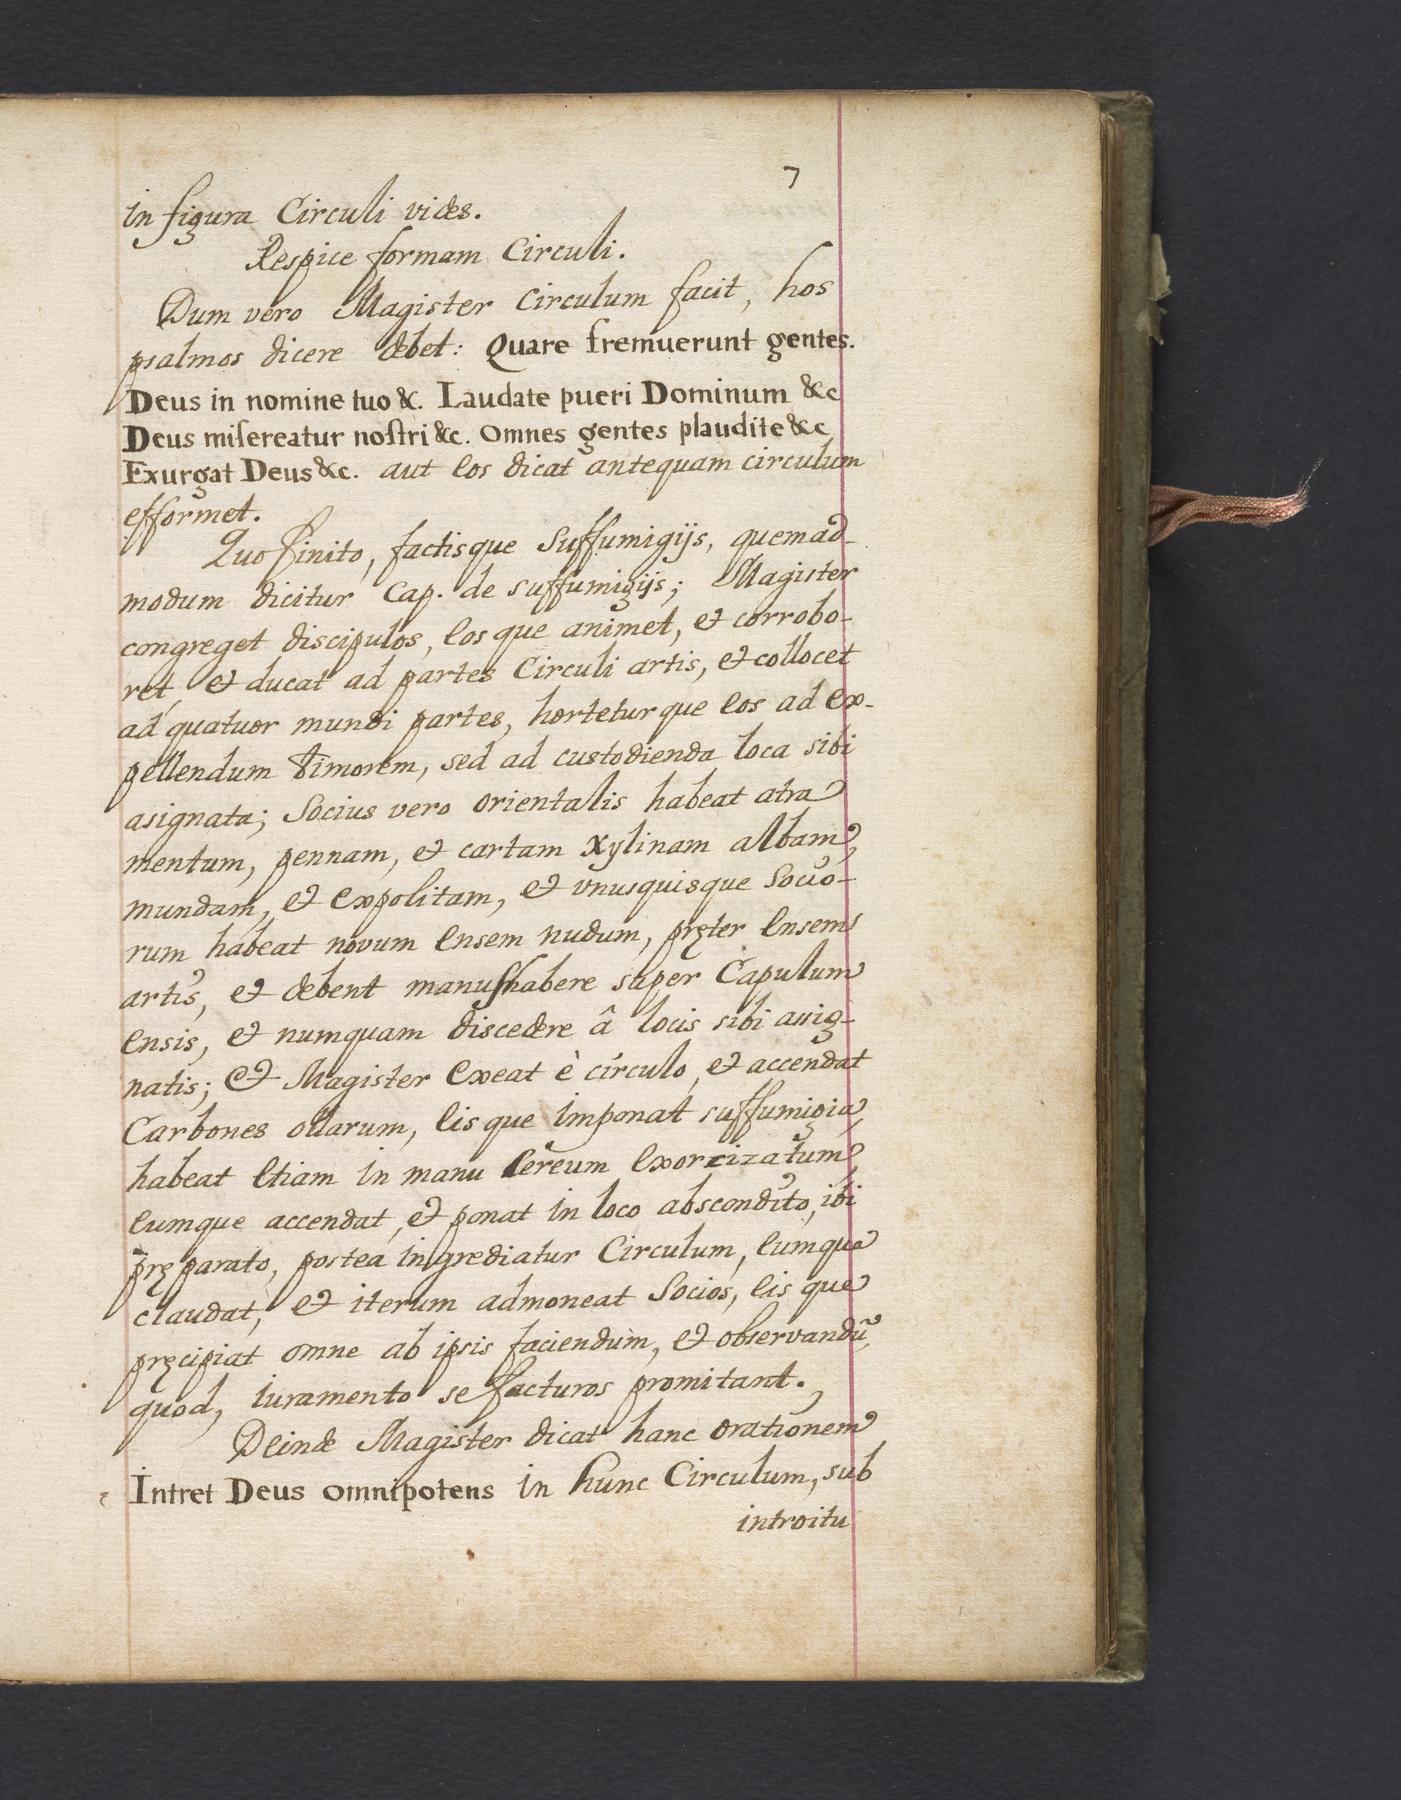 7
in figura Circuli vides.
Respice formam Circuli.
Dum vero Magister Circulum facit, hos
psalmos dicere debet: Quare fremuerunt gentes.
Deus in nomine tuo &c. Laudate pueri Dominum &c
Deus miſereatur noſtri &c. Omnes gentes plaudite &c
Exurgat Deus &c. aut eos dicat antequam circulum
efformet.
Quo finito, factisque Suffumigijs, quemad-
modum dicitur Cap. de suffumigijs; Magister
congreget discipulos, eosque animet, et corrobo-
ret, et ducat ad partes Circuli artis, et collocet
ad quatuor mundi partes, horteturque eos ad ex-
pellendum timorem, sed ad custodienda loca sibi
asignata; Socius vero orientalis habeat atra
mentum, pennam, et cartam Xylinam albam,
mundam, et expolitam, et vnusquisque Socio-
rum habeat novum ensem nudum, pręter ensem
artis, et debent manus habere super Capulum
ensis, et numquam discedere â locis sibi assig-
natis; et Magister exeat è círculo, et accendat
Carbones ollarum, eisque imponat suffumigia,
habeat etiam in manu Cereum exorcizatum
eumque accendat, et ponat in loco abscondito, ibi
pręparato, postea ingrediatur Circulum, eumque
claudat, et iterum admoneat Socios, eis que
pręcipiat omne ab ipsis faciendum, et observandũ,
quod, iuramento se facturos promitant.
Deinde Magister dicat hanc orationem
Intret Deus omnipotens in hunc Circulum, sub
introitu